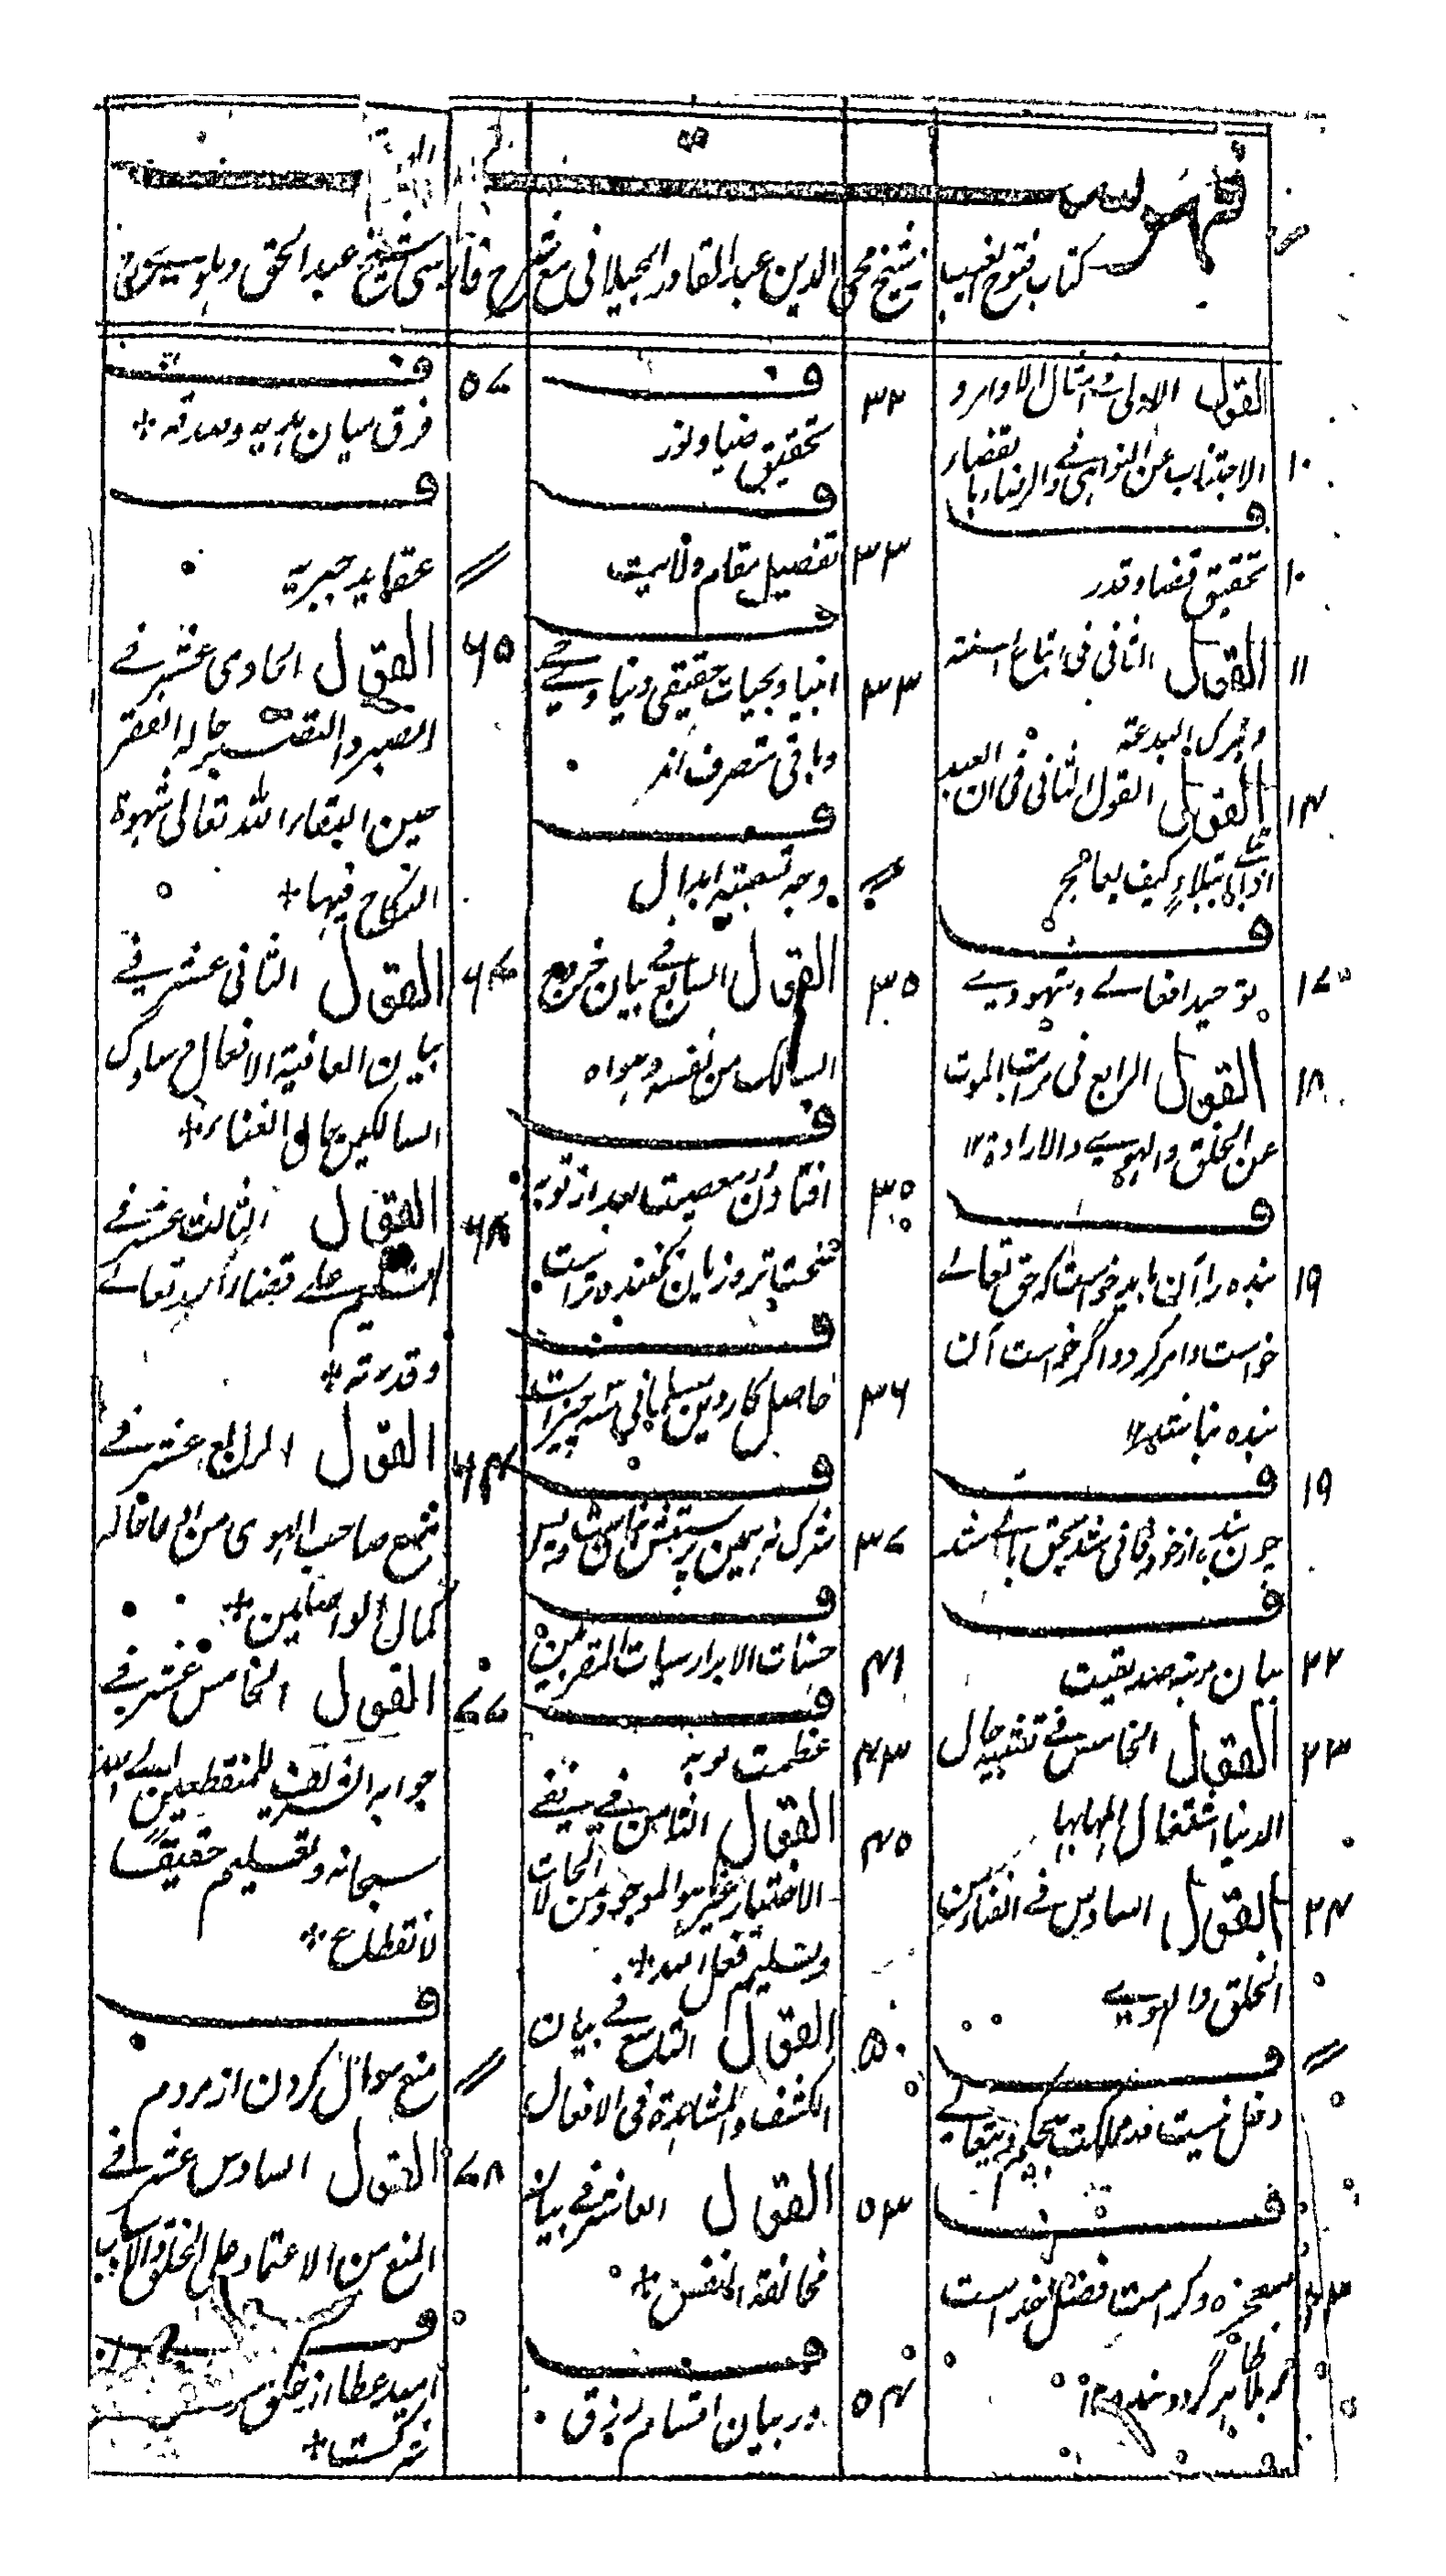 فهرست
کتاب فتوح الغیب شیخ محی الدین عبد القادر الجیلانی مع شرح فارسی شیخ عبد الحق دہلوی
القول الاولی فی امتثال الاوامر و
۱۰ الاجتناب عن النواہی والرضاء بالقضاء
ف
۱۰ تحقیق قضا و قدر
۱۱ القول الثانی فی اتباع السنتہ
و ترک البدعتہ
۱۴ القول القول الثانی فی ان العبد
اذا ابتلاء کیف یعالج
ف
۱۷ توحید افعالے و شہودیے
۱۸ القول الرابع فی مراتب الموت
عن الخلق والہویے والارادة ۱۲
ف
۱۹ بندہ را آن باید خواست کہ حق تعالے
خواست و امر کرد و اگر خواست آن
بندہ نباشد ۱۲
ف
۱۹ چون بندہ از خود فانی شد بحق باقی شد
ف
۲۲ بیان مرتبہ صدیقیت
۲۳ القول الخامس فی تشبیہ حال
الدنیا و اشتغال اہلہا بہا
۲۴ القول السادس فے الفناء من
الخلق والہویے
ف
دخل نیست در مملکت بحکم ویتعالے
ف
معجزہ و کرامت فضل خداست
کہ ظاہر گردد
ف
ف
۳۲ تحقیق ضیا و نور
ف
۳۳ تفصیل مقام ولایت
ف
۳۳ انبیا و بحیات حقیقی دنیاوی حی
و باقی متصرف اند
ف
وجہ تسمیتہ ابدال
۳۵ القول السابع فے بیان خروج
السالک من نفسہ و ہواہ
ف
۳۵ افتادن در معصیت بعد از توبہ
سخت تر و زیان کنندہ تر است
ف
۳۶ حاصل کار دین مسلمانی سہ چیز است
ف
۳۷ شرک نہ ہمین بت پرستیست و بس
ف
۴۱ حسنات الابرار سیات المقربین
ف
۴۳ عظمت توبہ
۴۵ القول الثامن فے نفے
الاختیار غیر ہو الموجود من الحالات
و تسلیم فعل اللہ +
۵۰ القول التاسع فے بیان
الکشف والمشاہدة فی الافعال
۵۳ القول العاشر فے بیان
مخالفة النفس +
ف
۵۴ در بیان اقسام رزق
ف
۵۷ فرق میان ہدیہ و صدقہ +
ف
عقاید جبریہ
۶۵ القول الحادی عشر فے
الصبر و التقصیر حالہ الفقر
حین البقاء اللہ تعالی شہوة
النکاح فیہا +
القول الثانی عشر فے
بیان العافیة الافعال و سلوک
السالکین مالی الغناء +
۶۸ القول الثالث عشر فے
التسلیم علے قضاء اللہ تعالے
و قدرتہ +
القول الرابع عشر فے
منع صاحب الہوی من ادعا حالہ
کمال الواصلین +
۷۷ القول الخامس عشر فے
جوابہ الشریف للمنقطعین الے اللہ
سبحانہ و تعلیم حقیقة
لانقطاع +
ف
منع سوال کردن از مردم
۷۸ القول السادس عشر فے
المنع من الاعتماد علی الخلق والاسباب
ف
امید عطا از خلق
شرکست +